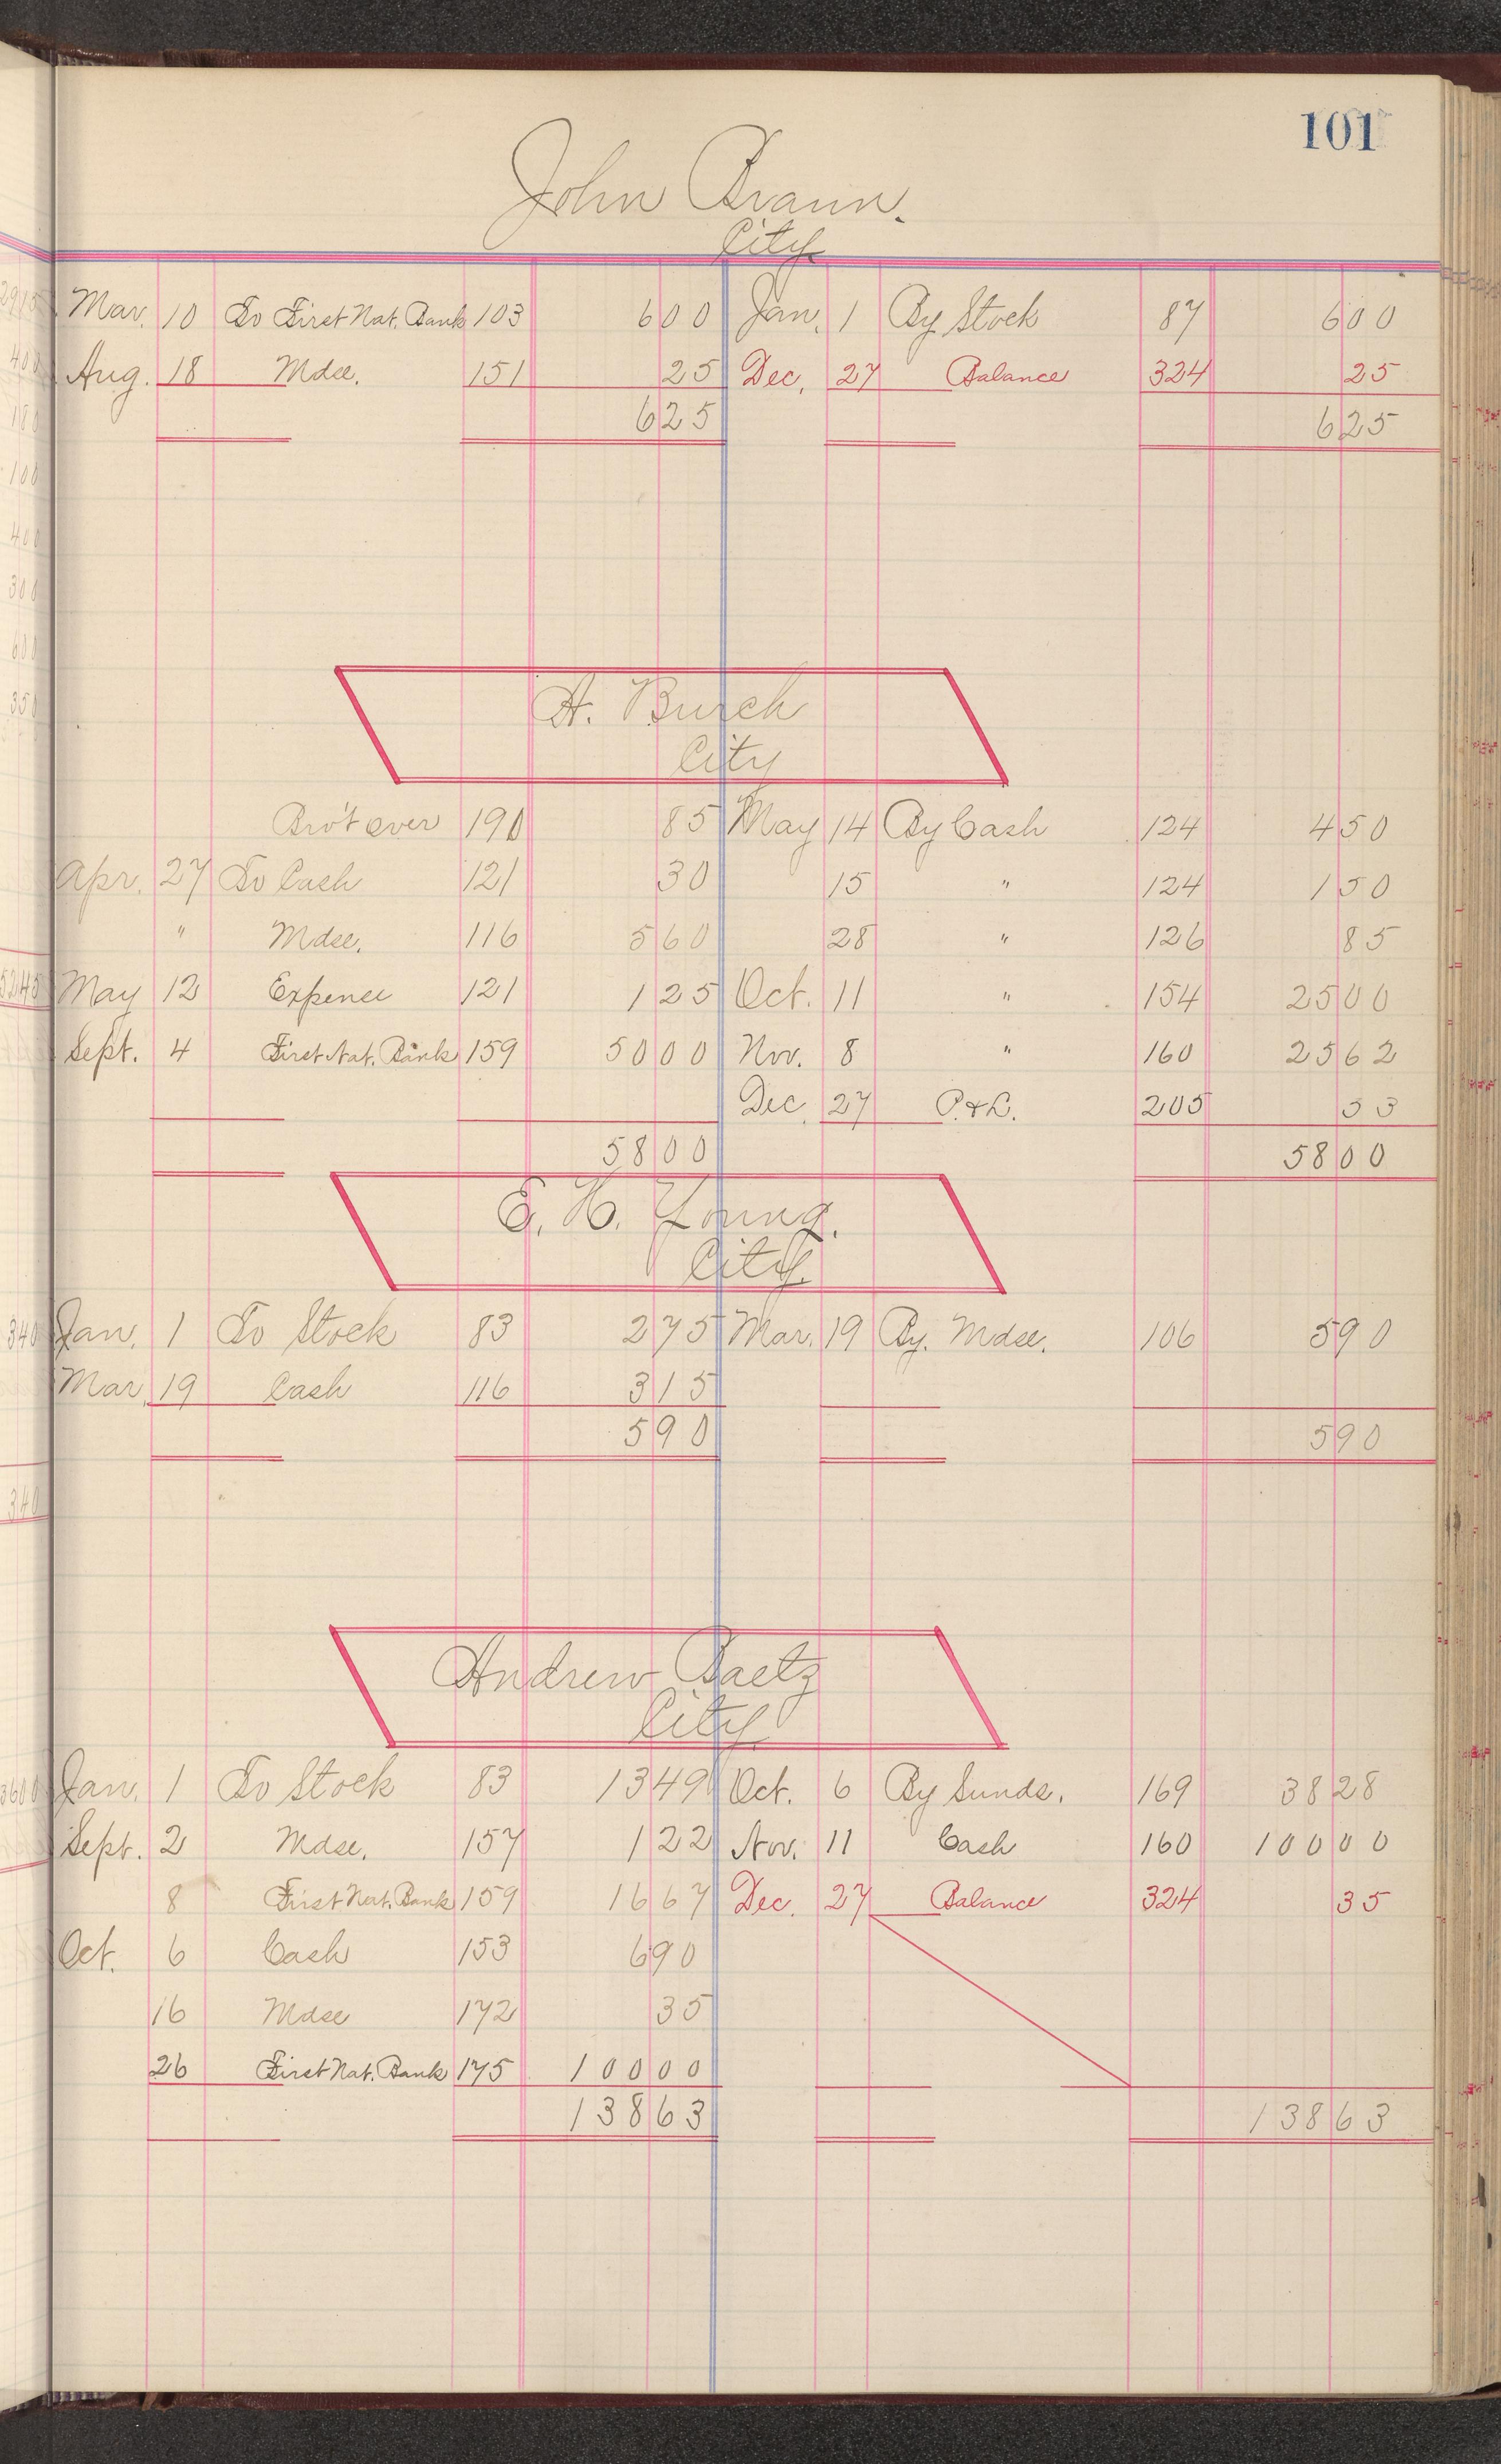 101
John Braun.
City
Mar. 10 To First Nat. Bank 103 600 Jan. 1 By Stock 87 600
Aug. 18 Mdse. 151 25 Dec. 27 Balance 324 25
625 625
A. Burch
City
Bro't over 190 85 May 14 By Cash 124 450
Apr. 27 To Cash 121 30 15 " 124 150
" Mdse. 116 560 28 " 126 85
May 12 Expence 121 125 Oct. 11 " 154 2500
Sept. 4 First Nat. Bank 159 5000 Nov. 8 " 160 2562
Dec. 27 P. & L. 205 53
5800 5800
E. H. Young.
City.
Jan. 1 To Stock 83 275 Mar. 19 By. Mdse. 106 590
Mar. 19 Cash 116 315
590 590
Andrew Baetz
City
Jan. 1 To Stock 83 1349 Oct. 6 By Sunds. 169 3828
Sept. 2 Mdse. 157 122 Nov. 11 Cash 160 10000
8 First Nat. Bank 159 1667 Dec. 27 Balance 324 35
Oct. 6 Cash 153 690
16 Mdse 172 35
26 First Nat. Bank 175 10000
13863 13863